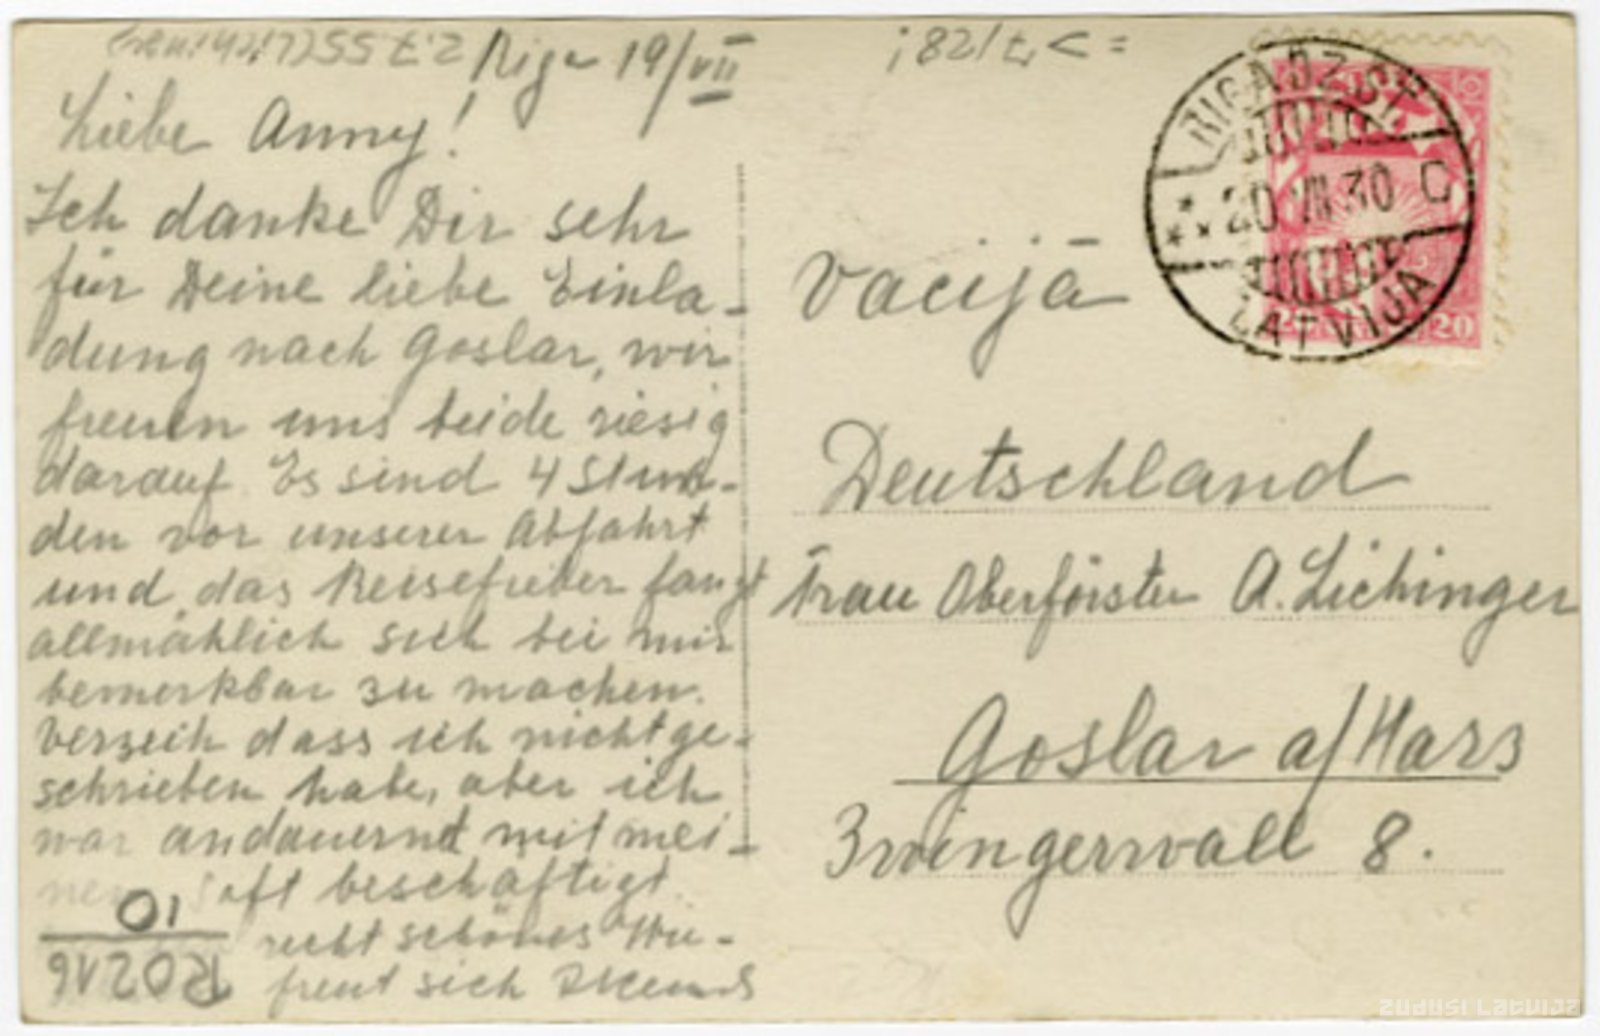 Riga 19/VII
Liebe Anny!
Ich danke Dir sehr
für Deine liebe Einla-
dung nach Goslar, wir
freuen uns beide riesig
darauf. Es sind 4 Stun-
den vor unserer Abfahrt
und das Reisefieber fangt
allmählich sich bei mir
bemerkbar zu machen.
Verzeih dass ich nicht ge-
schrieben habe, aber ich
war andauernd mit mei-
nem oft beschäftigt.
recht schönes Wie-
freut sich
10
R0216
RIGA DZST.
20 VII 30 C
LATVIJA
20
Vācijā
Deutschland
Frau Oberförster A. Lichinger
Goslar a/Harz
Zwingerwall 8.
ZUDUSI LATVIJA